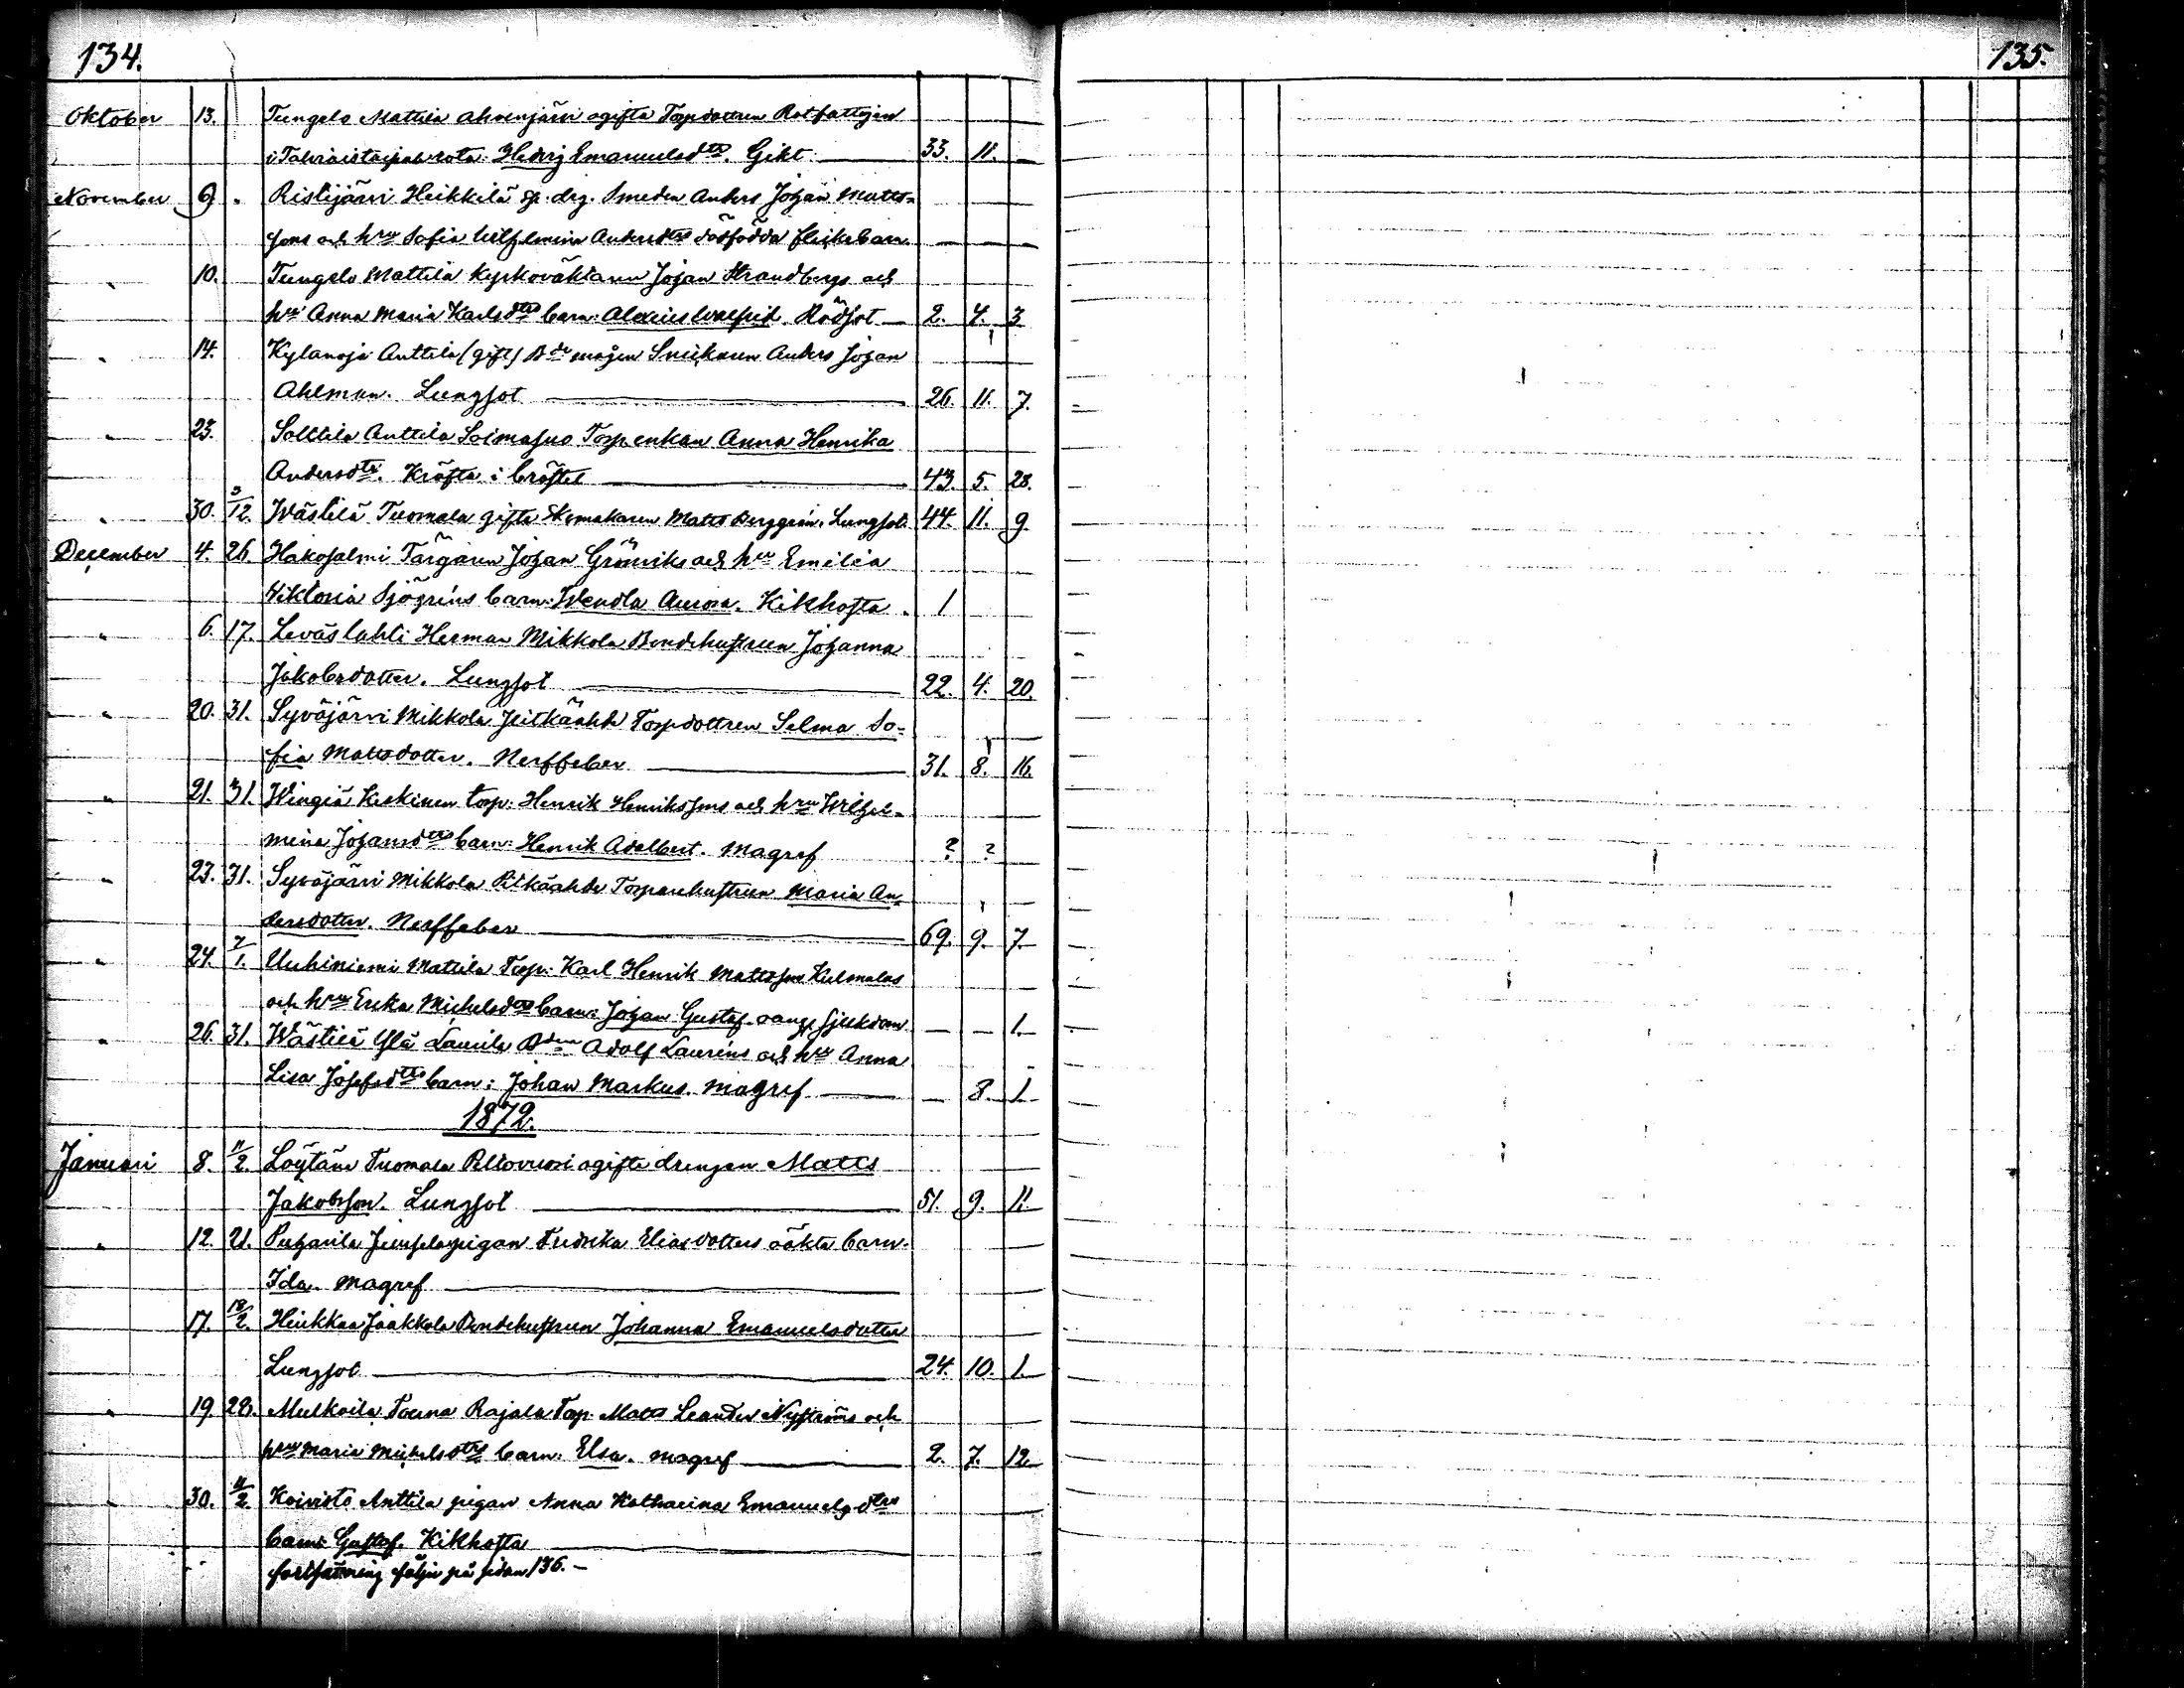 134.
135.
Oktober 13. Tungelo Mattila Ahvenjärvi ogifta Torpdottren Rotfattigen
i rota: Hedvig Emanuelsdtr. Gikt 33. 11. —
November 9 " Ristijärvi Heikkilä drg. Smeden Anders Johan Matts-
sons och hru Sofia Wilhelmina Andersdtrs dödfödda flickebarn. — — —
" 10. Tungelo Mattila Kyrkoväktaren Johan Strandbergs och
hru Anna Maria Karlsdtrs barn: Rödsot 2. 4. 3
" 14. Kylanoja Anttila (gift) Bde mågen Snickaren Anders Johan
Ahlman. Lungsot 26. 11. 7.
" 23. Solttila Anttila Soimasuo Torp enkan Anna Henrika
Andersdtr. Kräfta i bröstet 43. 5. 28.
" 30. 3/12. Wästilä Tuomala gifte Skomakaren Matts Berggren. Lungsot. 44. 11. 9
December 4. 26. Hakosalmi Färgaren Johan Grönviks och hru Emilia
Viktoria Sjögrens barn: Wendla Aurora. Kikhosta. 1
" 6. 17. Leväslahti Herman Mikkola Bondehustrun Johanna
Jakobsdotter. Lungsot 22. 4. 20.
" 20. 31. Syväjärvi Mikkola Pitkäahde Torpdottren Selma So-
fia Mattsdotter. Nerffeber 31. 8. 16.
" 21. 31. Wingiä Keskinen torp: Henrik Henrikssons och hru Wilhel-
mina Johansdtrs barn: Henrik Adelbert. Magref ? ?
" 23. 31. Syväjärvi Mikkola Pitkäahde Torparehustrun Maria An-
dersdotter. Nerffeber 69. 9. 7.
" 24. 7/1. Uuhiniemi Mattila Torp: Karl Henrik Mattsson Kulmalas
och hru Erika Michelsdtrs barn: Johan Gustaf. oang. sjukdom — — 1.
" 26. 31. Wästilä Ylä Laurila Bden Adolf Laurens och hru Anna
Lisa Josefsdtrs barn: Johan Markus. Magref — 8. 1
1872.
Januari 8. 11/2. Löytäne Tuomala Peltovuori ogifte drengen Matts
Jakobsson. Lungsot 51. 9. 11.
" 12. 21. Puharila Junselapigan Fredrika Eliasdotters oäkta barn.
Ida. Magref
17. 18/2. Heikkaa Jaakkola Bondehustrun Johanna Emanuelsdotter
Lungsot 24. 10. 1.
" 19. 28. Multoila Touna Rajala Torp. Matts Leander Nyströms och
hru Maria Michelsdtrs barn: Elsa. Magref 2. 7. 12.
" 30. 11/2. Koivisto Anttila pigan Anna Katharina Emanuelsdtrs
barn: Gustaf. Kikhosta
fortsättning följer på sidan 136. –